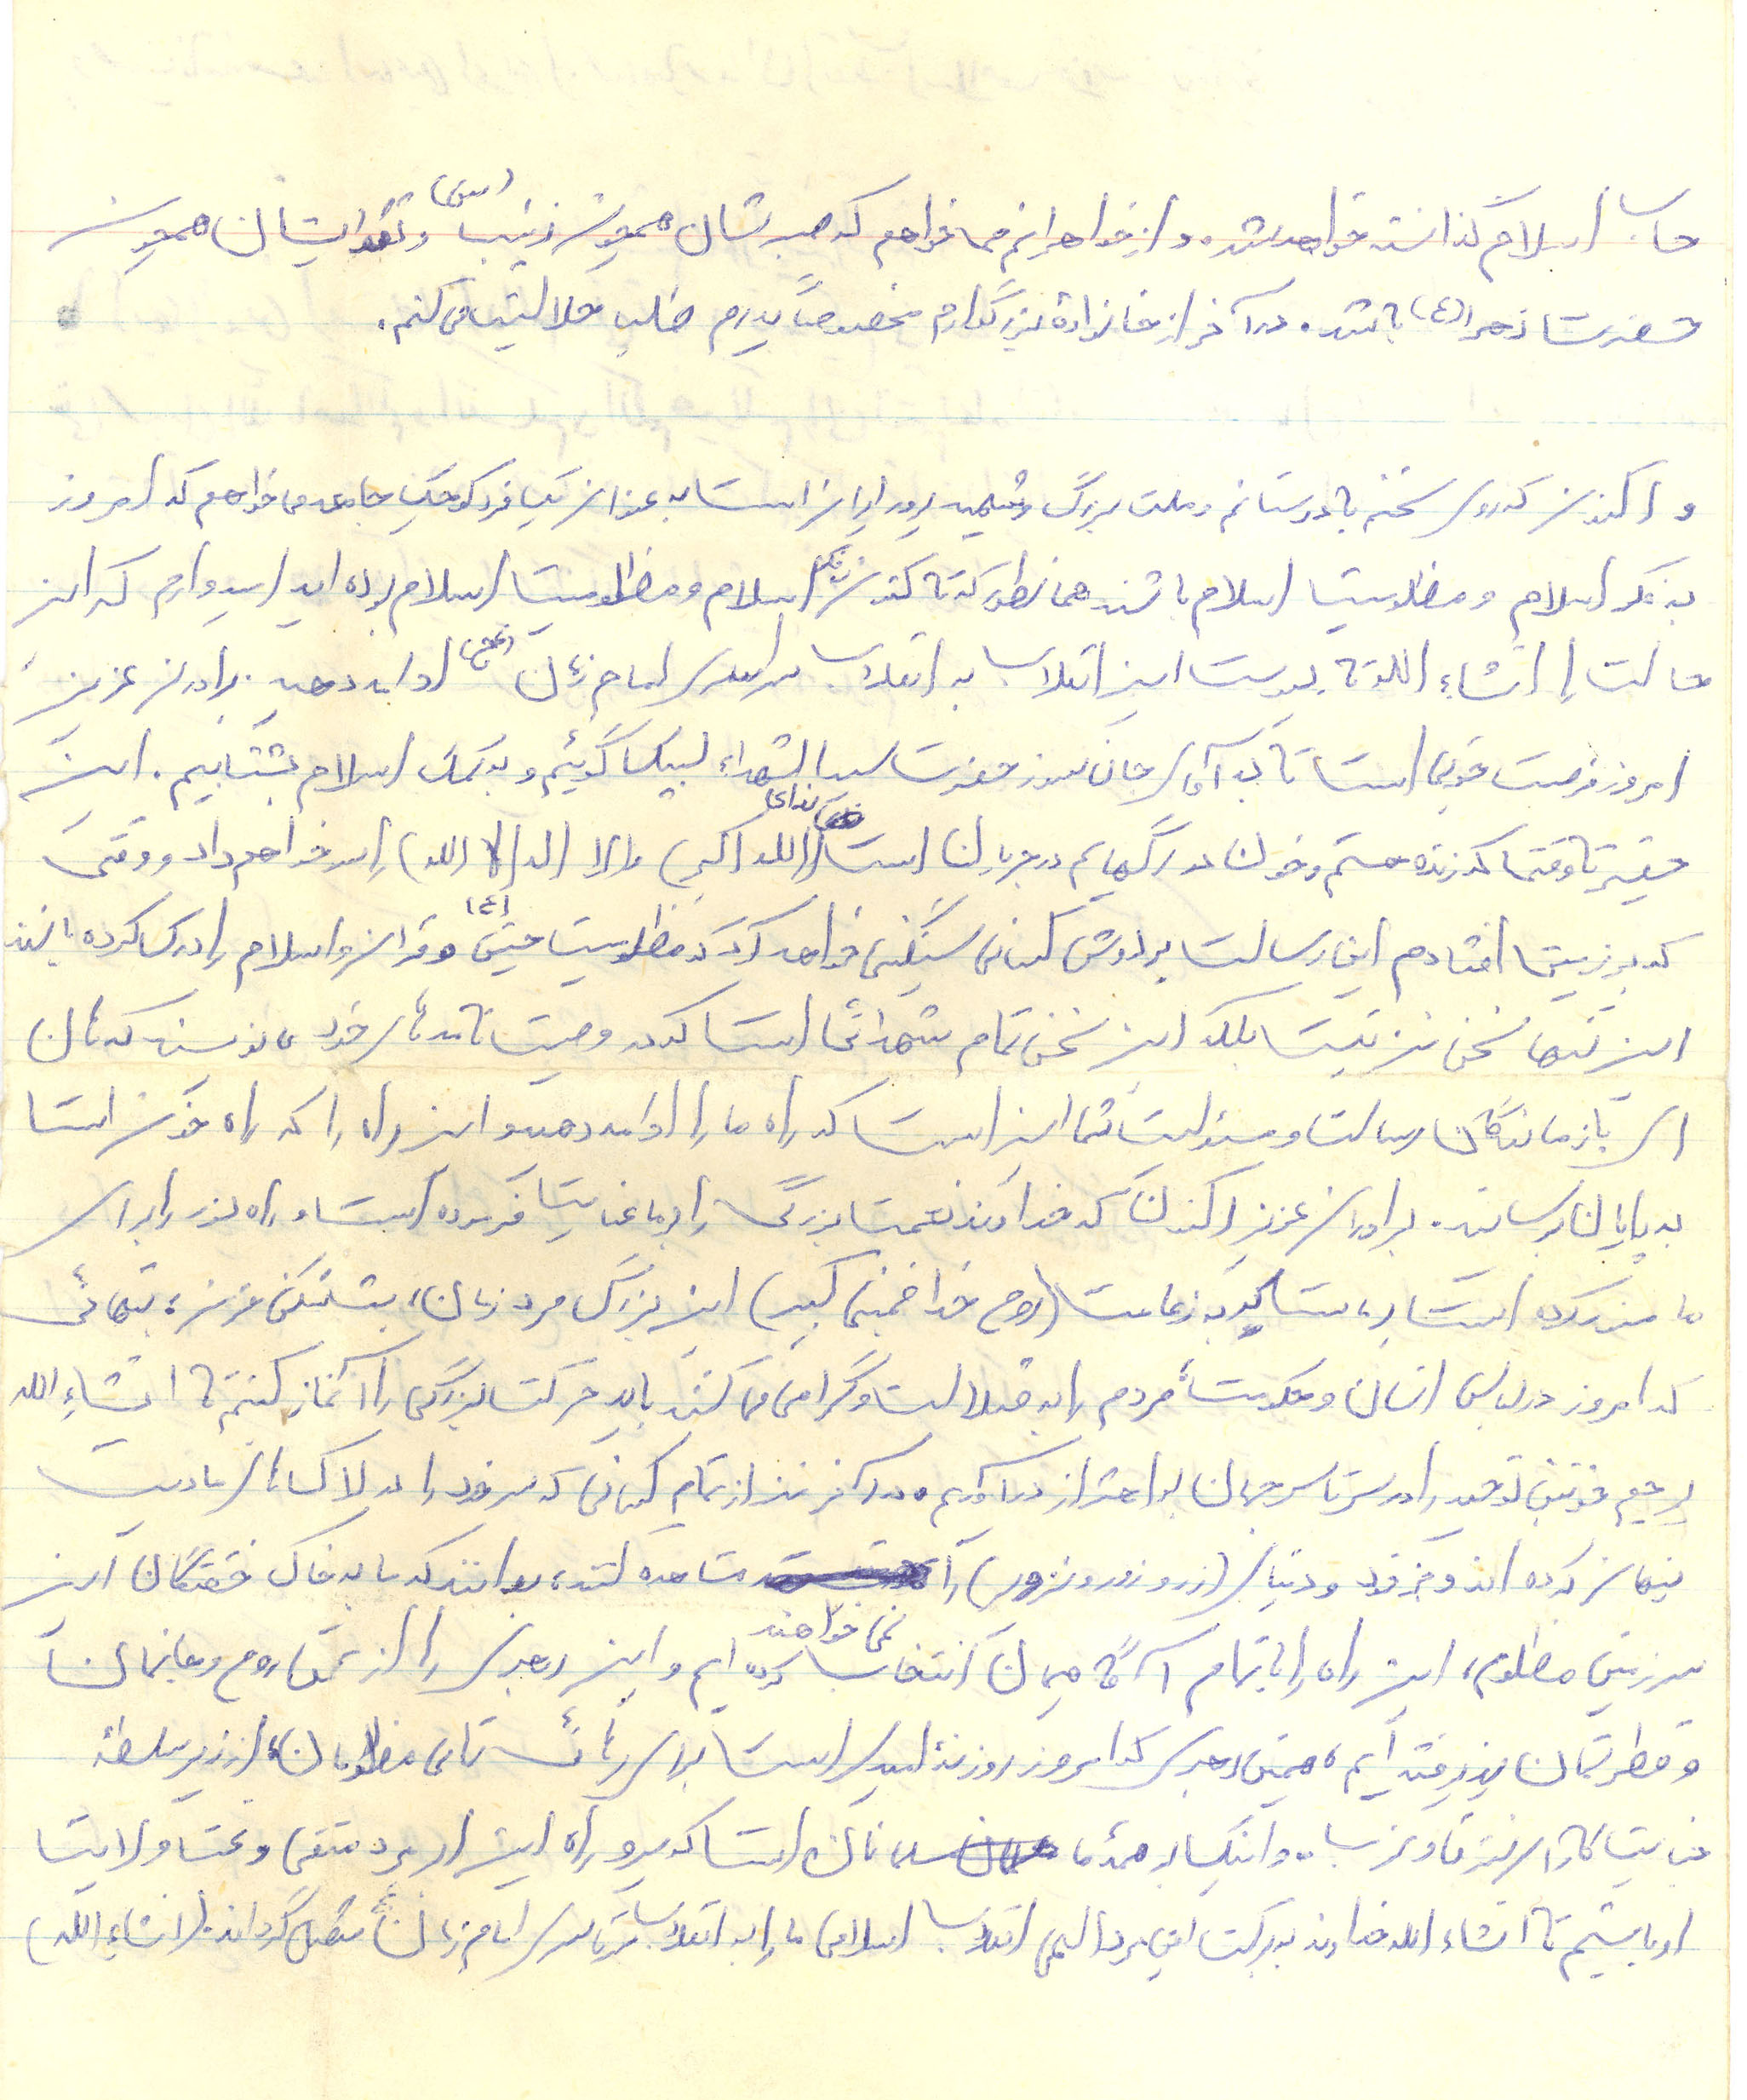 حساب اسلام گذاشته خواهد شد. و از خواهرانم میخواهم که صبرشان همچون زینب (س) و تقوایشان همچون
حضرت زهرا (ع) باشد. در آخر از خانوادهٔ بزرگوارم مخصوصاً پدرم طلب حلالیت می کنم.
و اکنون که روی سخنم با دوستانم و ملت بزرگ و شهید پرور ایران است به عنوان یک فرد کوچک جامعه میخواهم که امروز
به فکر اسلام و مظلومیت اسلام باشند همانطور که تاکنون بفکر اسلام و مظلومیت اسلام بوده اید امیدوارم که این
حالت را انشاء الله تا پیوست این انقلاب به انقلاب سراسری امام زمان (عج) ادامه دهید. برادران عزیز
امروز فرصت خوبی است تا به آوای جان سوز حضرت سید الشهداء لبیک گوئیم و به کمک اسلام بشتابیم. این
حقیر تا وقتی که زنده هستم و خون در رگهایم در جریان است ندای (الله اکبر) و (لا اله الا الله) را سر خواهم داد و وقتی
که بر زمین افتادم این رسالت بر دوش کسانی سنگینی خواهد کرد که مظلومیت حسین (ع) و قرآن و اسلام را درک کرده باشند
این تنها سخن من نیست بلکه این سخن تمام شهدائی است که در وصیت نامه های خود می نویسند که هان
ای بازماندگان رسالت و مسئولیت شما این است که راه ما را ادامه دهید و این راه را که راه خون است
به پایان برسانید. برادران عزیز اکنون که خداوند نعمت بزرگی را بر ما عنایت فرموده است و راه نور را برای
ما منور کرده است باید به زعامت (روح خدا خمینی کبیر) این بزرگ مرد زمان، بشکنیم بتهائی
که امروز در لباس انسان و حکومت مردم را به ضلالت و گمراهی می کشند باید حرکت بزرگی را آغاز کنیم تا انشاء الله
پرچم خونین توحید را در سرتاسر جهان به اهتزاز درآوریم. در آخر نیز از تمام کسانی که سر خود را در لاک های مادیت
پنهان کرده اند و بجز خود و دنیای (زر و زور و تزویر) را نمی خواهند مشاهده کنند، بدانند که ما به خاک خفتگان این
سرزمین مظلوم، این راه را با تمام آگاهیمان انتخاب کرده ایم و این رهبری را از عمق روح و جانمان
و فطرتمان پذیرفته ایم، همین رهبری که امروز روزنهٔ امیدی است برای رهائی تمامی مظلومان از زیر سلطهٔ
جنایتکاران شرق و غرب. و اینک بر همهٔ ما مسلمانان است که پیرو راه این ابر مرد متقی و تحت ولایت
او باشیم تا انشاء الله خداوند به برکت این مرد الهی انقلاب اسلامی ما را به انقلاب سرتاسری امام زمان (عج) متصل گرداند. (انشاء الله)